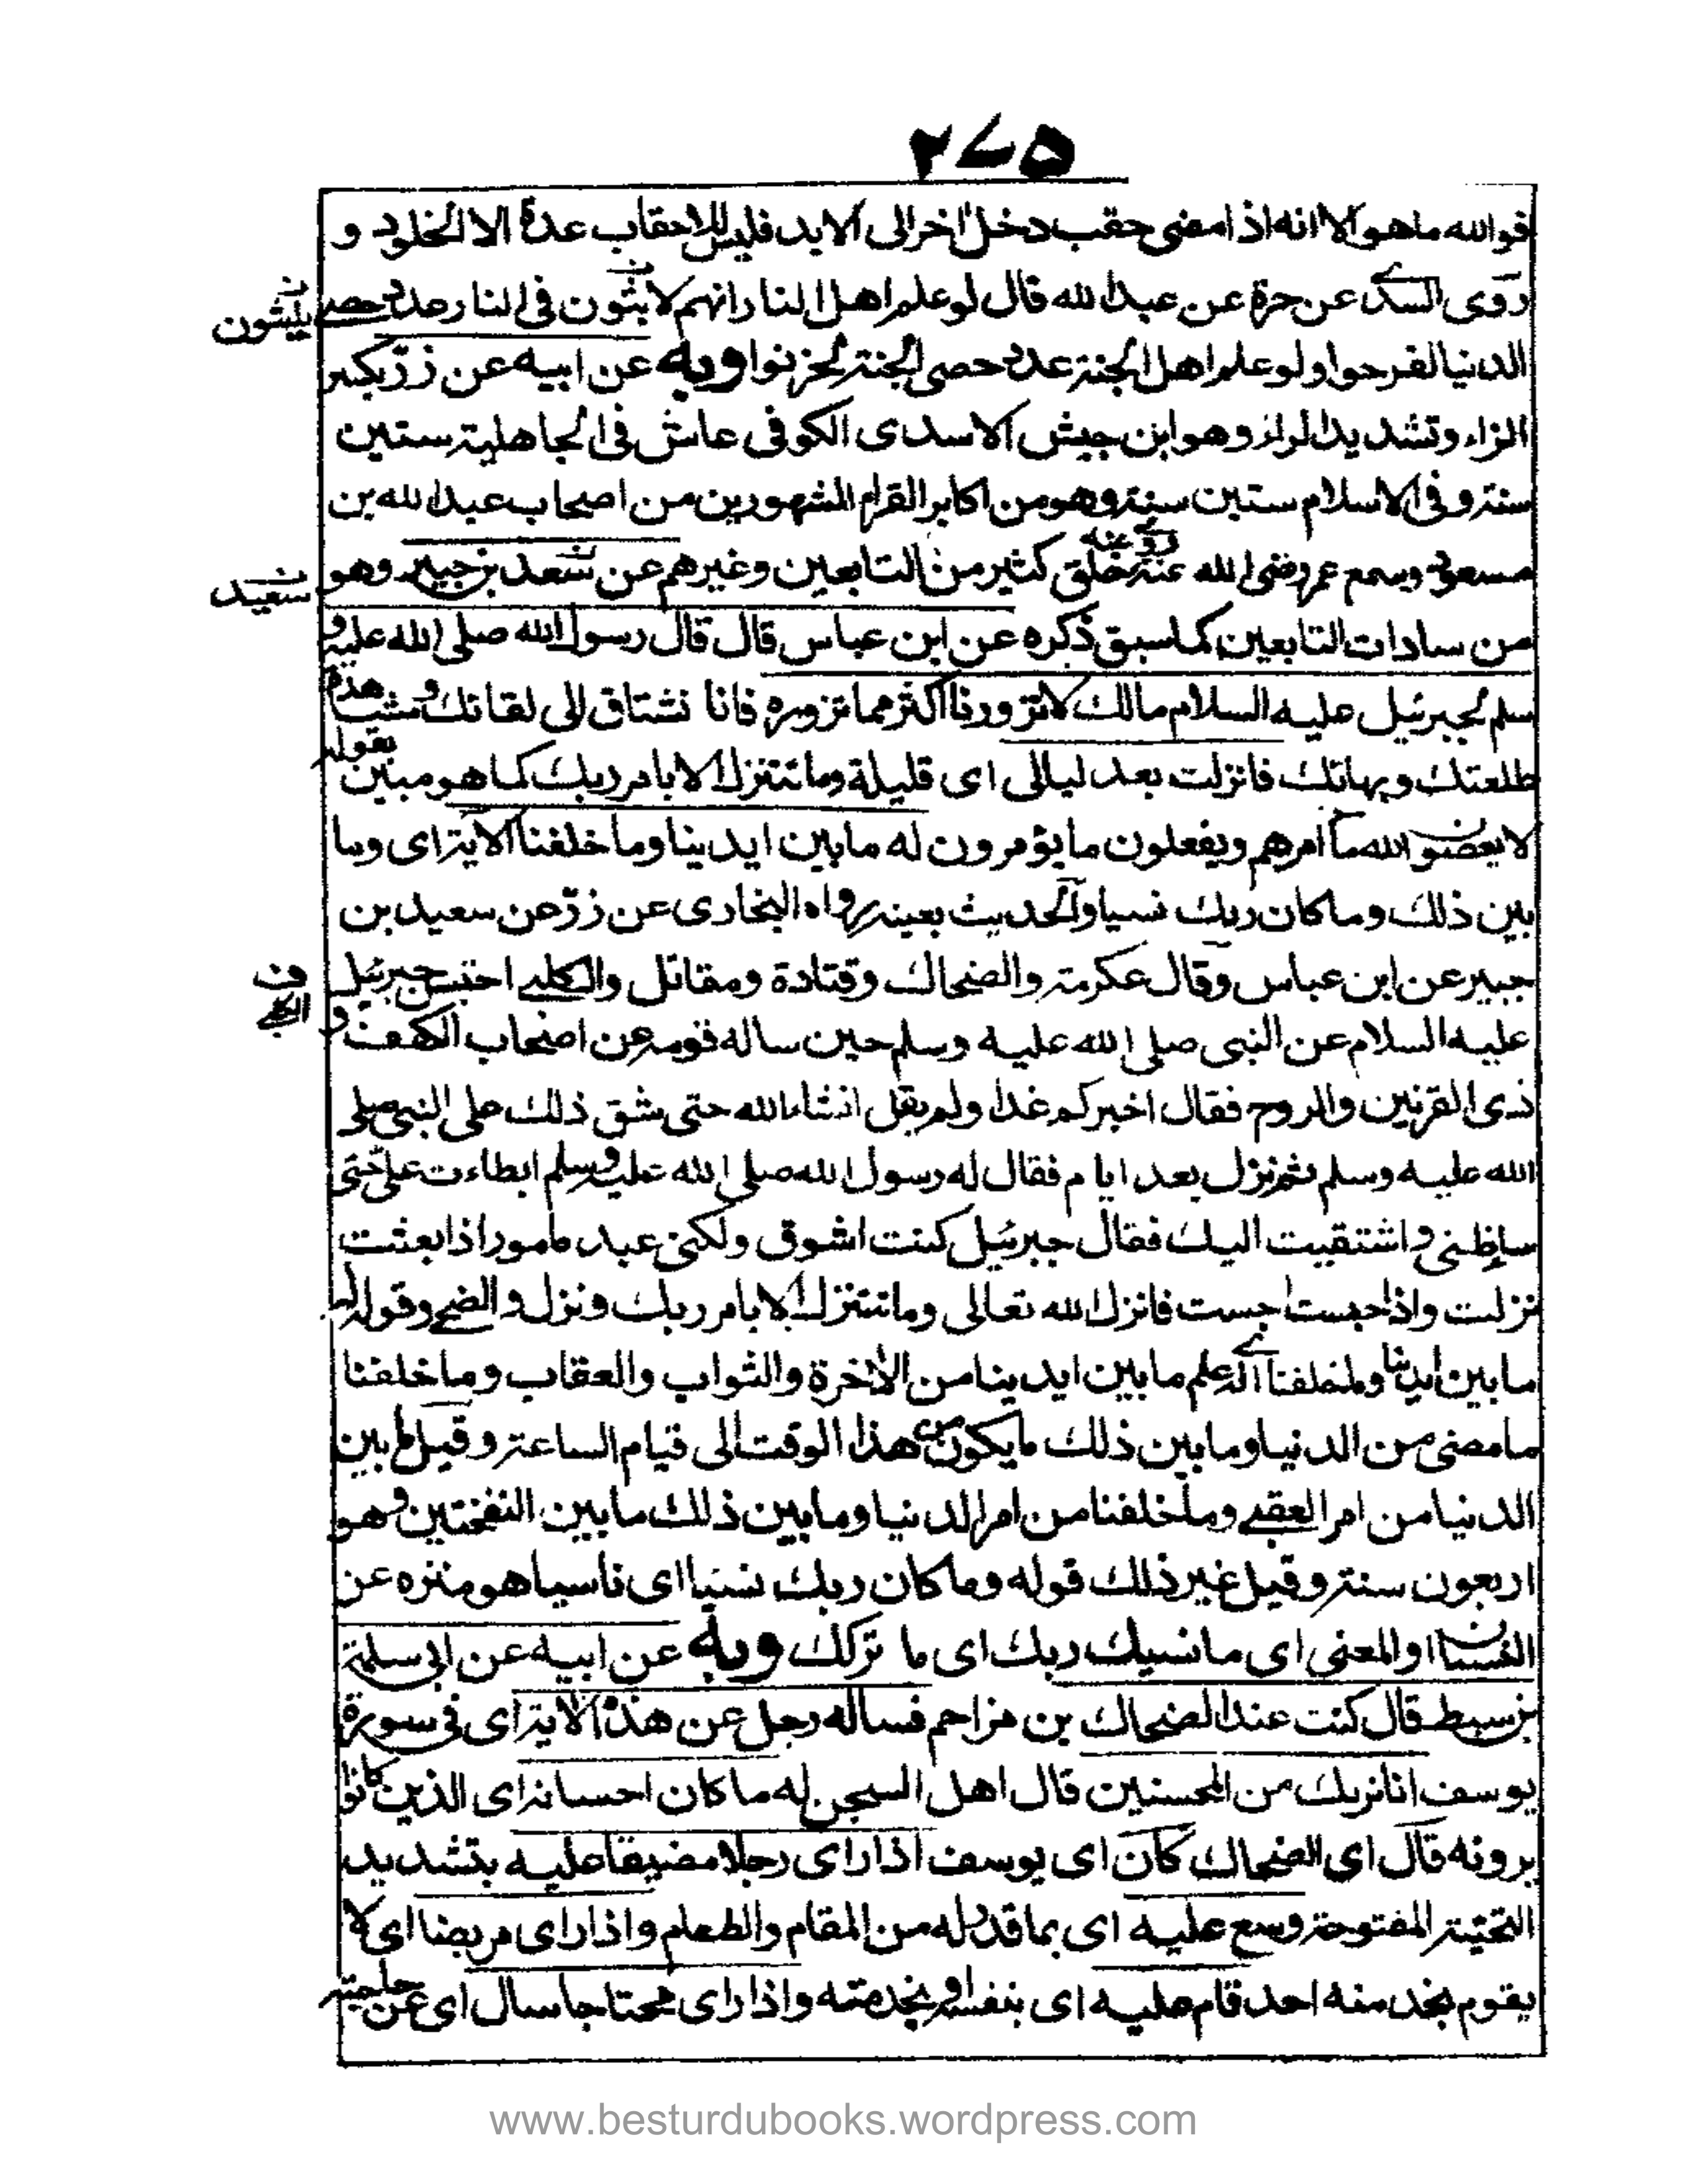 ٢٧٥
فوالله ما هو الا انه اذا مضى حقب دخل اخر الى الابد فليس للاحقاب عدة الا الخلود و
روى السدى عن مرة عن عبد الله قال لو علم اهل النار انهم لا يثون فى النار عدد حصى
يلبثون
الدنيا لفرحوا ولو علم اهل الجنة عدد حصى الجنة لحزنوا وبه عن ابيه عن زرّ بكسر
الزاء وتشديد الراء وهو ابن جيش الاسدى الكوفى عاش فى الجاهلية ستين
سنة وفى الاسلام ستين سنة وهو من اكابر القراء المشهورين من اصحاب عبد الله بن
مسعود وسمع عمر رضى الله عنه روى عنه خلق كثير من التابعين وغيرهم عن سعد بن جبير وهو
سعيد
من سادات التابعين كما سبق ذكره عن ابن عباس قال قال رسول الله صلى الله عليه و
سلم لجبرئيل عليه السلام مالك لا تزورنا اكثر مما تزوره فانا نشتاق الى لقائك و مشاهدة
طلعتك وبهائك فانزلت بعد ليالى اى قليلة وما نتنزل الا بامر ربك كما هو مبين بقوله
لا يعصون الله ما امرهم ويفعلون ما يؤمرون له ما بين ايدينا وما خلفنا الاية اى وما
بين ذلك وما كان ربك نسيا والحديث بعينه رواه البخارى عن زرّ عن سعيد بن
جبير عن ابن عباس وقال عكرمة والضحاك وقتادة ومقاتل والكلبى احتبس جبرئيل
ف
الكلبى
عليه السلام عن النبى صلى الله عليه وسلم حين ساله قومه عن اصحاب الكهف و
ذى القرنين والروح فقال اخبركم غدا ولم يقل انشاء الله حتى شق ذلك على النبى صلى
الله عليه وسلم ثم نزل بعد ايام فقال له رسول الله صلى الله عليه وسلم ابطاءت علىّ حتى
ساء ظنى واشتقيت اليك فقال جبرئيل كنت اشوق ولكنى عبد مامور اذا بعثت
نزلت واذا حبست احتبست فانزل الله تعالى وما نتنزل الا بامر ربك ونزل والضحى وقوله له
ما بين ايدينا وما خلفنا اى له علم ما بين ايدينا من الاخرة والثواب والعقاب وما خلفنا
ما مضى من الدنيا وما بين ذلك ما يكون من هذا الوقت الى قيام الساعة وقيل ما بين
الدنيا من امر العقبى وما خلفنا من امر الدنيا وما بين ذلك ما بين النفختين وهو
اربعون سنة وقيل غير ذلك قوله وما كان ربك نسيا اى ناسيا هو منزه عن
النسيان او المعنى اى ما نسيك ربك اى ما تركك وبه عن ابيه عن ابى سلمة
بن سبيط قال كنت عند الضحاك بن مزاحم فساله رجل عن هذه الاية اى فى سورة
يوسف انا نريك من المحسنين قال اهل السجن له ما كان احسانه اى الذين كانوا
يرونه قال اى الضحاك كان اى يوسف اذا راى رجلا مضيقا عليه بتشديد
التحتية المفتوحة وسع عليه اى بما قدر له من المقام والطعام واذا راى مريضا اى لا
يقوم بخدمته احد قام عليه اى بنفسه او بخدمته واذا راى محتاجا سال اى عن حاجته
www.besturdubooks.wordpress.com